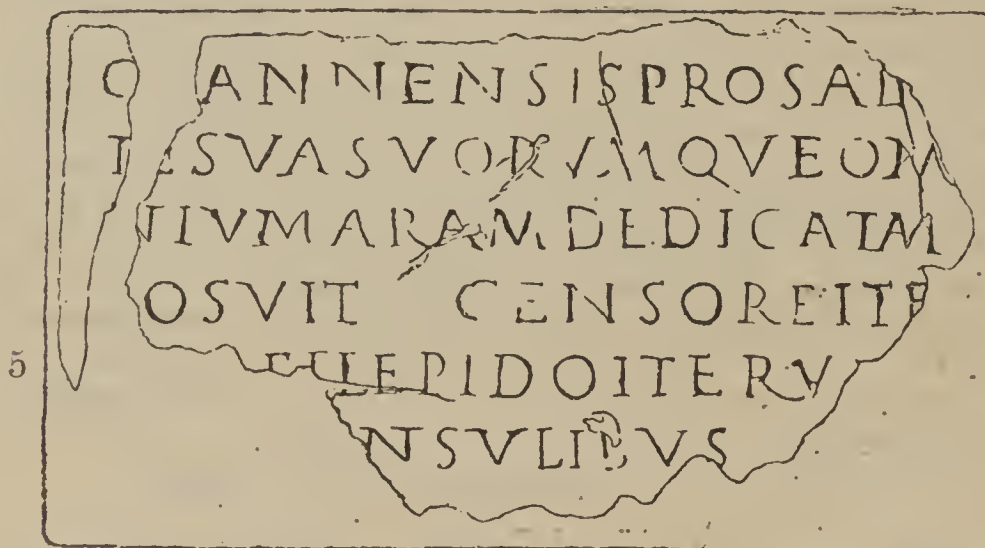 C ANNENSIS PRO SAL
TE SVA SVORVMQVE OM
NIVM ARAM DEDICATAM
OSVIT CENSORE ITE
ET LEPIDO ITERV
5
NSVLIBVS